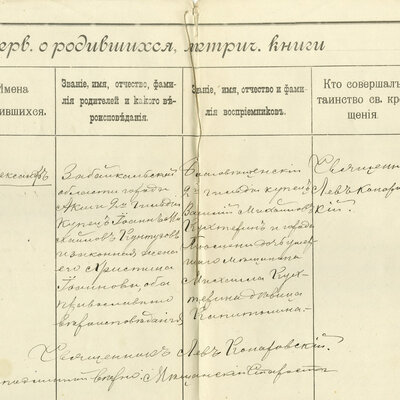 ерв. о родившихся, метрич. книги
Имена
ившихся.
Званіе, имя, отчество, фами-
лія родителей и какого вѣ-
роисповѣданія.
Званіе, имя, отчество и фами-
лія воспріемниковъ.
Кто совершалъ
таинство св. кре-
щенія.
лександръ
Забайкальской
области города
Акши 2й гильдіи
Купецъ Іоаннъ Ми-
хайловъ Кунгуровъ
и законная жена
его Христина
Іоаннова, оба
православнаго
вѣроисповѣданія
2й гильдіи купецъ
Василій Михайловъ
Кухтеринъ и города
дочь
мѣщанина
Михаила Кух-
терина дѣвица
Капитолина.
Священникъ
Левъ Конар-
скій.
Священникъ Левъ
вѣрно: Мѣщанскій Староста